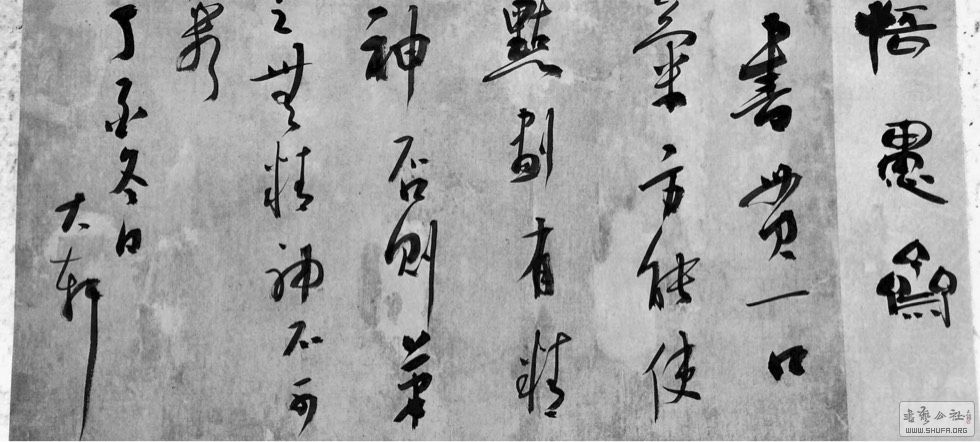 悟愚
書貴一口
氣方能使
點劃有精
神否則筆
之無精神不可
丁亥冬日
大軒
書藝公社
WWW.SHUFA.ORG